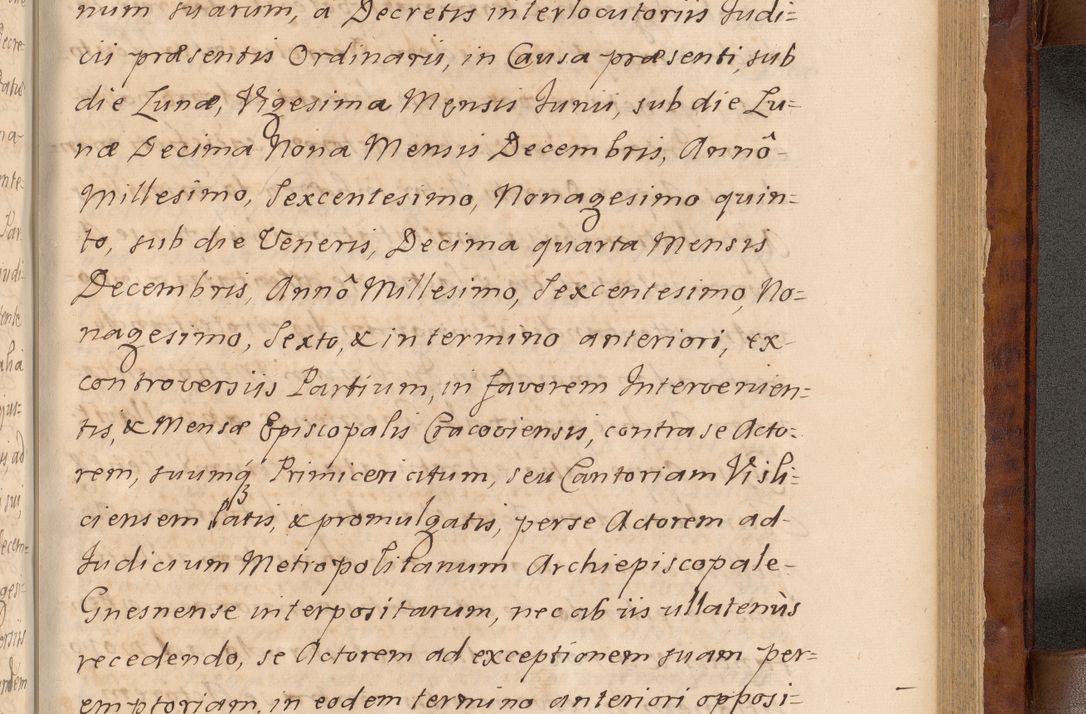 num suarum, a Decretis interlocutoriis Judi=
cii præsentis Ordinarii, in Causa præsenti, sub
die Lunæ, Vigesima Mensis Junii, sub die Lu=
næ Decima Nona Mensis Decembris, Annô
Millesimo, Sexcentesimo, Nonagesimo quin=
to, sub die Veneris, Decima quarta Mensis
Decembris, Annô Millesimo, Sexcentesimo, No=
nagesimo, Sexto, & in termino anteriori, ex
controversiis Partium, in favorem Intervenien=
tis, & Mensæ Episcopalis Cracoviensis, contra se Acto=
rem, suumq₃ Primiceriatum, seu Cantoriam Visli=
ciensem latis, & promulgatis, per se Actorem ad
Judicium Metropolitanum Archiepiscopale
Gnesnense interpositarum, nec ab iis ullatenùs
recedendo, se Actorem ad exceptionem suam per=
emptoriam, in eodem termino anteriori opposi=